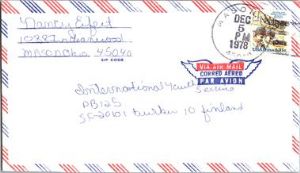 Nancy Eifert
MASON OH 45040
ZIP CODE
DEC
5
PM
1978
VIA AIR MAIL
CORREO AEREO
PAR AVION
International Youth
Service
PB 125
SF-20101 Turku 10 Finland